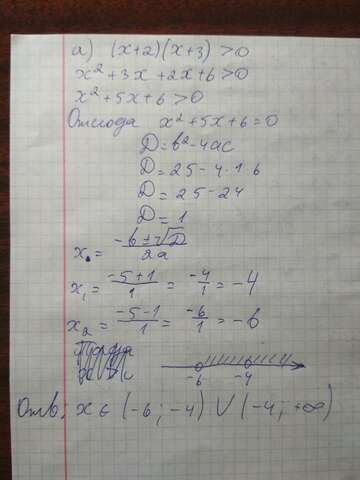 а) (x+2)(x+3)>0
x²+3x+2x+6>0
x²+5x+6>0
Отсюда x²+5x+6=0
D=b²-4ac
D=25-4·1·6
D=25-24
D=1
x = (-b±√D)/2a
x₁ = (-5+1)/1 = -4/1 = -4
x₂ = (-5-1)/1 = -6/1 = -6
-6 -4
Отв: x∈(-6;-4)∪(-4;+∞)